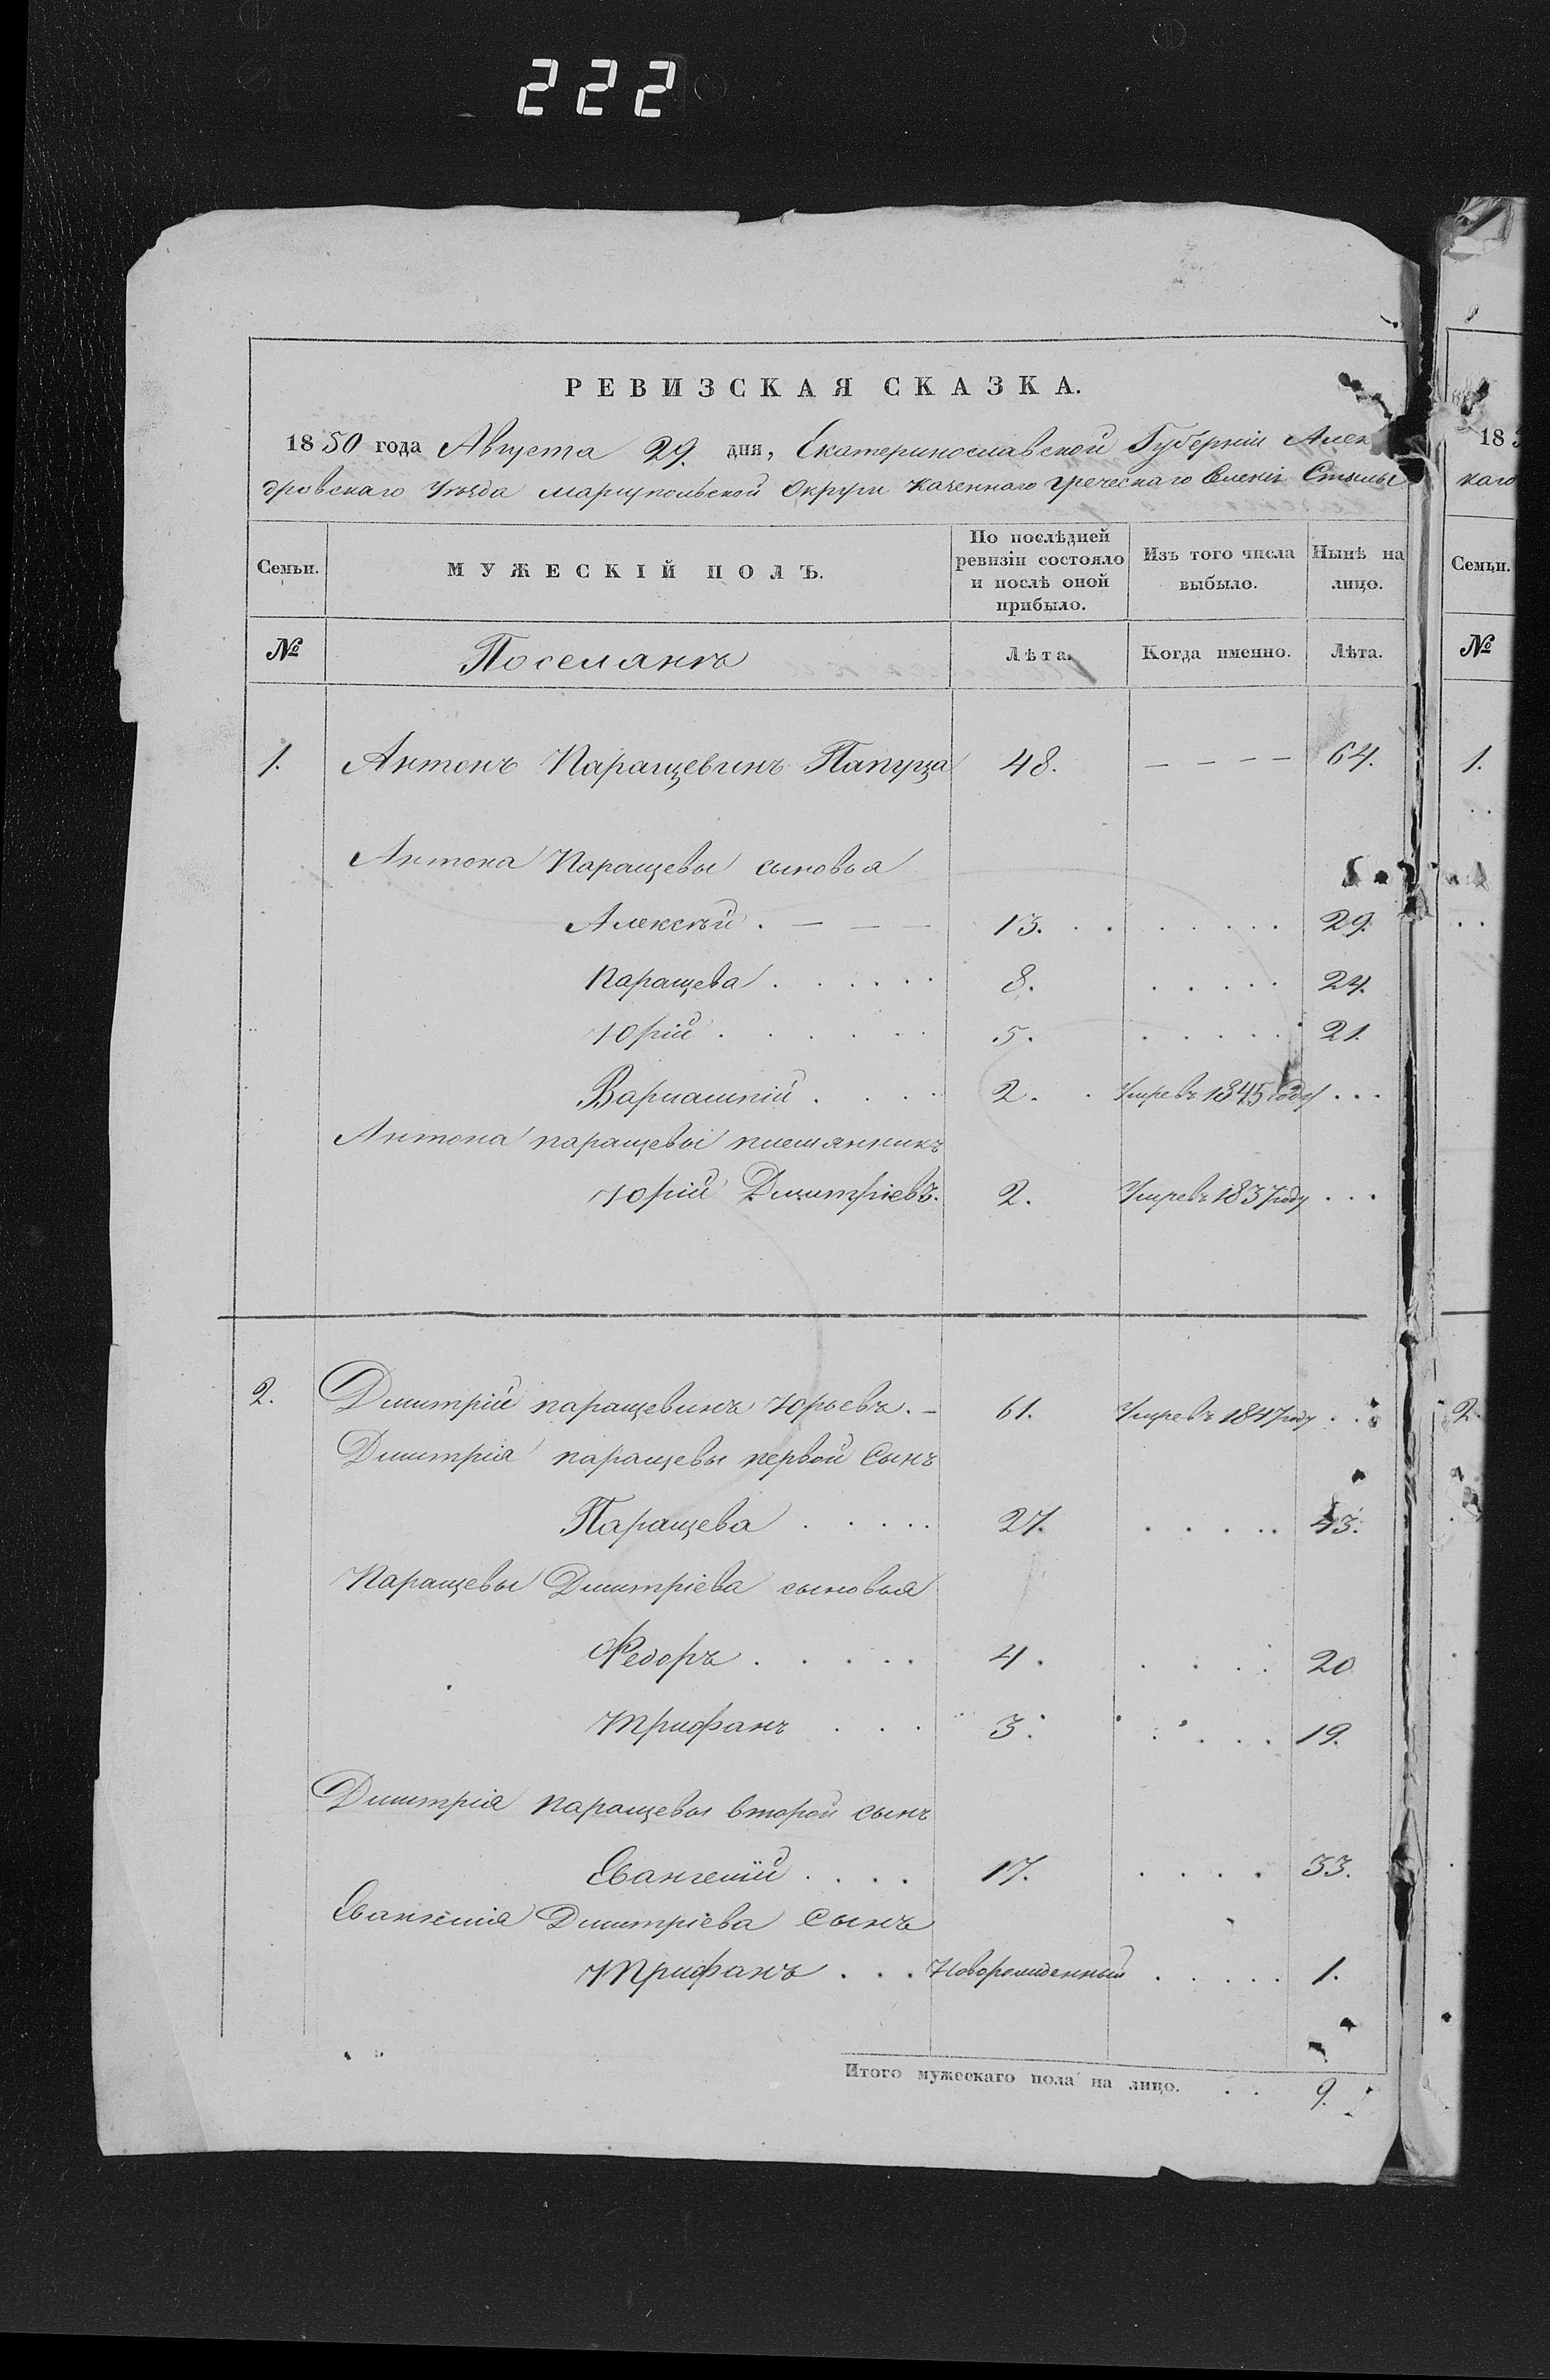 222
РЕВИЗСКАЯ СКАЗКА.
1850 года Августа 29. дня, Екатеринославской Губерніи Алек
дровскаго Уезда Мариупольской Округи Казенного Греческаго Селенія Стылы
Семьи. МУЖЕСКІЙ ПОЛЪ. По послѣдней ревизіи состояло и послѣ оной прибыло. Изъ того числа выбыло. Нынѣ на лицо. Семьи.
№ Поселянъ Лѣта. Когда именно. Лѣта. №
1. Антонъ Паращевинъ Папуца 48. – – – – 64. 1.
Антона Паращевы сыновья
Алексѣй . – – – 13. . . . . . . . 29.
Паращева . . . . . . 8. . . . . . 24.
Юрій . . . . . . 5. . . . . . 21.
Варлампій . . . . 2. . Умревъ 1845 году . . .
Антона паращевы племянникъ
Юрій Дмитріевъ. 2. Умревъ 1837 году . . .
2. Дмитрій паращевинъ Юрьевъ. – 61. Умревъ 1847 году . . . 2.
Дмитрія паращевы первой Сынъ
Паращева . . . . . 27. . . . . . 43.
Паращевы Дмитріева сыновья
Федоръ . . . . . 4. . . . . 20
Трифанъ . . . 3. . . . . 19.
Дмитрія паращевы второй сынъ
Евангелій . . . . 17. . . . . 33.
Евангелія Дмитріева Сынъ
Трифанъ . . . Новорожденный . . . . . 1.
Итого мужескаго пола на лицо. . . 9.